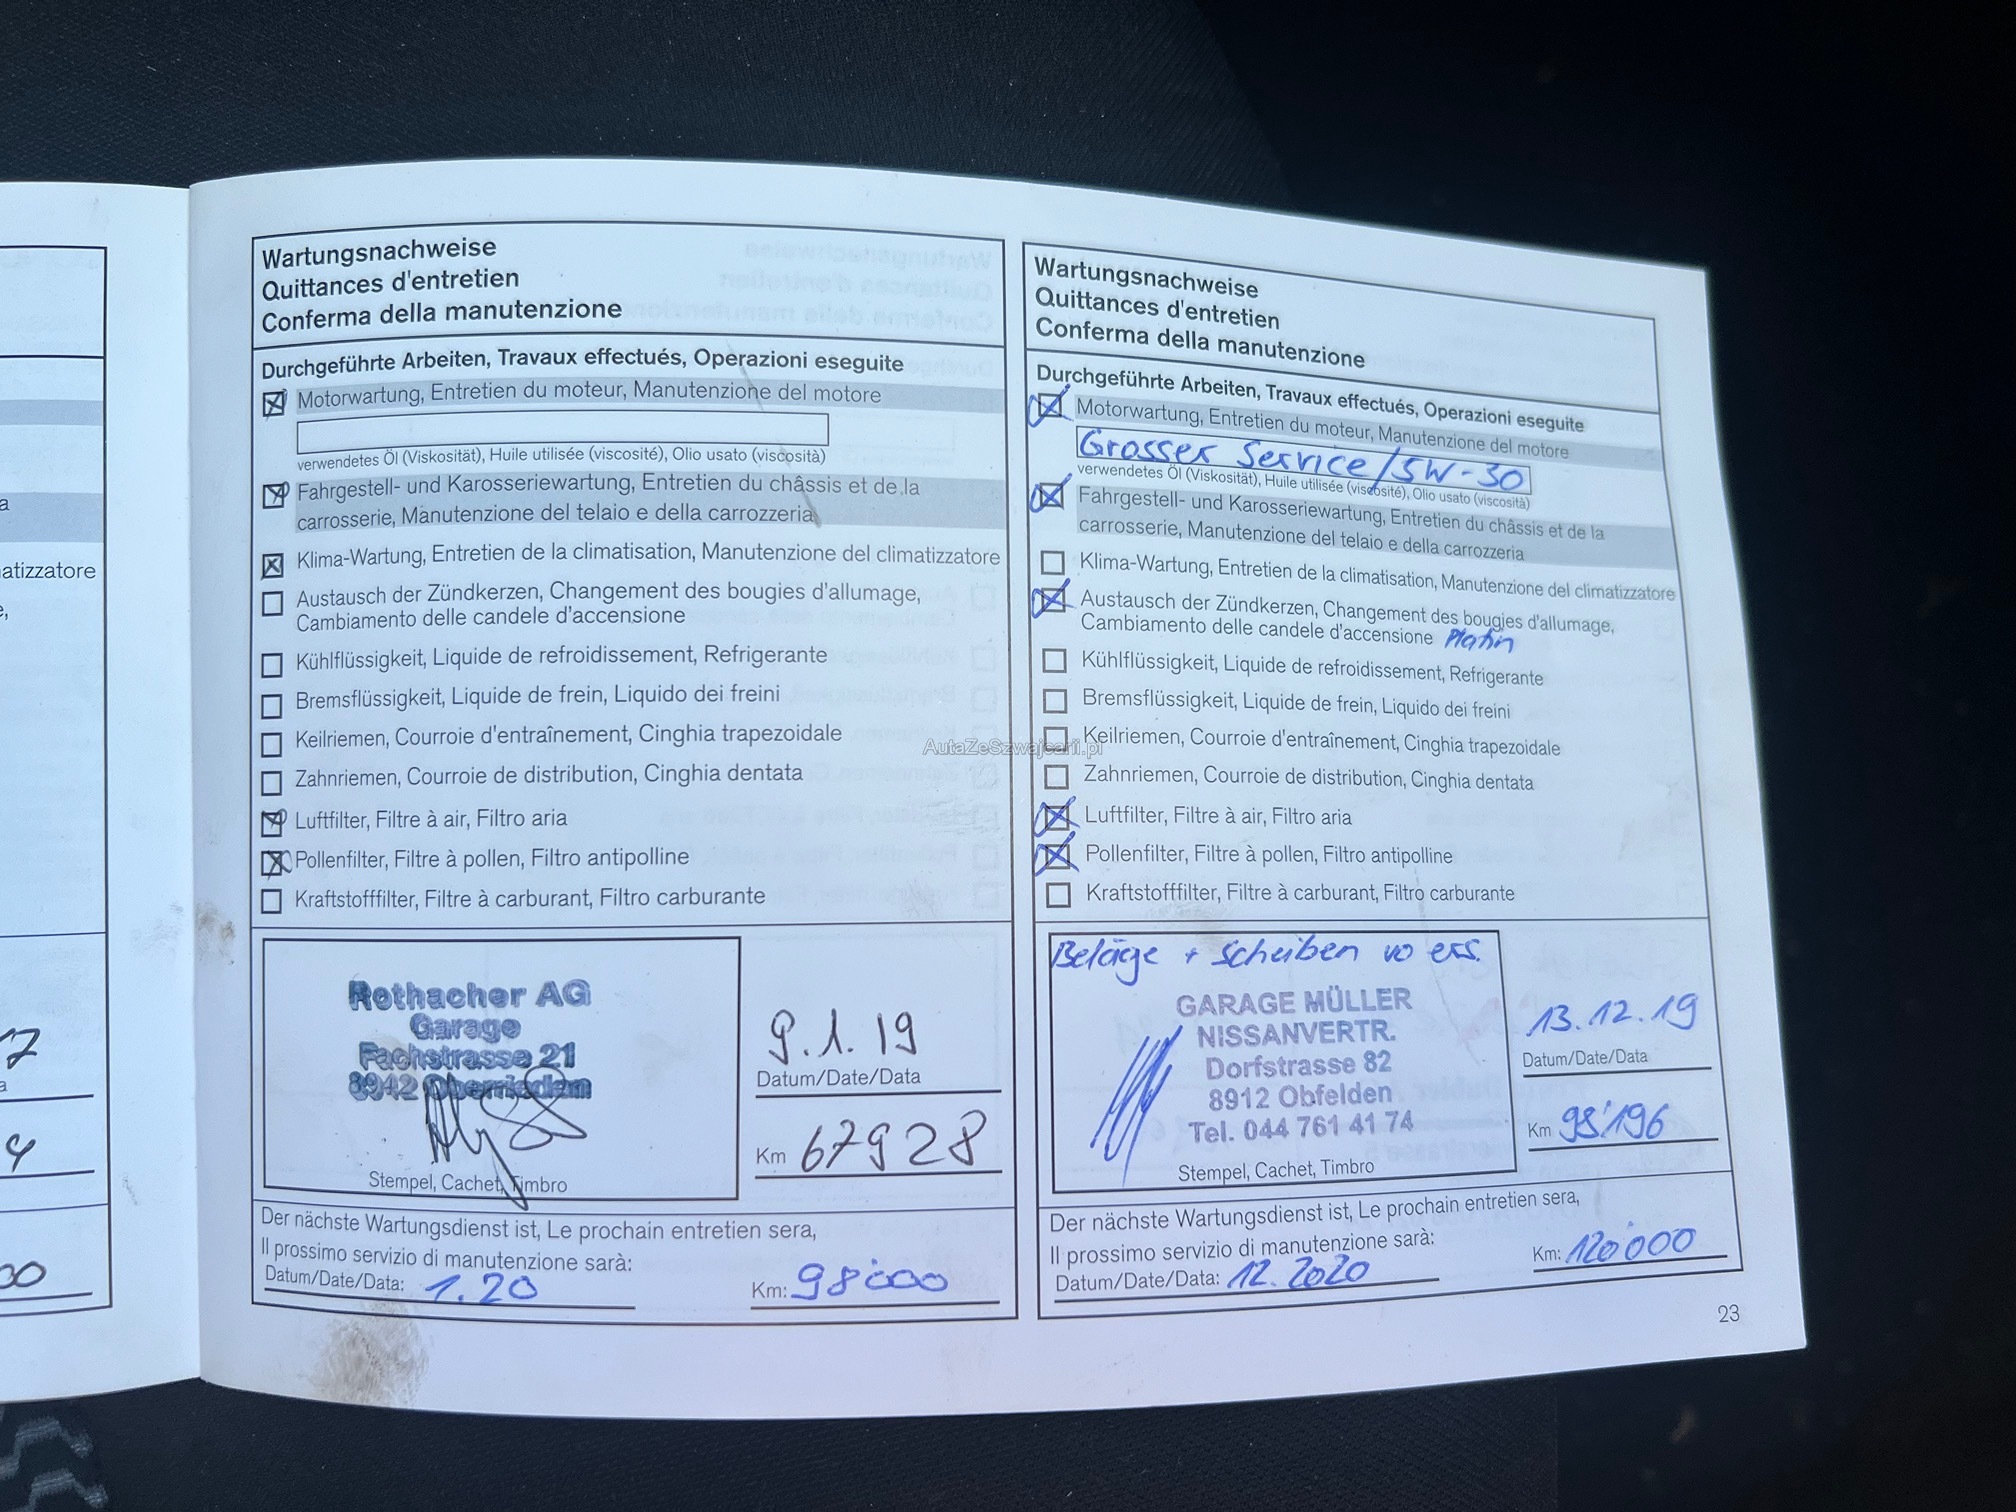 atizzatore
00
Wartungsnachweise
Quittances d'entretien
Conferma della manutenzione
Durchgeführte Arbeiten, Travaux effectués, Operazioni eseguite
Motorwartung, Entretien du moteur, Manutenzione del motore
verwendetes Öl (Viskosität), Huile utilisée (viscosité), Olio usato (viscosità)
Fahrgestell- und Karosseriewartung, Entretien du châssis et de la
carrosserie, Manutenzione del telaio e della carrozzeria
Klima-Wartung, Entretien de la climatisation, Manutenzione del climatizzatore
Austausch der Zündkerzen, Changement des bougies d'allumage,
Cambiamento delle candele d'accensione
Kühlflüssigkeit, Liquide de refroidissement, Refrigerante
Bremsflüssigkeit, Liquide de frein, Liquido dei freini
Keilriemen, Courroie d'entraînement, Cinghia trapezoidale
Zahnriemen, Courroie de distribution, Cinghia dentata
Luftfilter, Filtre à air, Filtro aria
Pollenfilter, Filtre à pollen, Filtro antipolline
Kraftstofffilter, Filtre à carburant, Filtro carburante
Rothacher AG
Garage
Fachstrasse 21
8942 Oberrieden
Stempel, Cachet, Timbro
9.1.19
Datum/Date/Data
Km 67928
Der nächste Wartungsdienst ist, Le prochain entretien sera,
Il prossimo servizio di manutenzione sarà:
Datum/Date/Data: 1.20
Km: 98'000
Wartungsnachweise
Quittances d'entretien
Conferma della manutenzione
Durchgeführte Arbeiten, Travaux effectués, Operazioni eseguite
Motorwartung, Entretien du moteur, Manutenzione del motore
Grosser Service/5W-30
verwendetes Öl (Viskosität), Huile utilisée (viscosité), Olio usato (viscosità)
Fahrgestell- und Karosseriewartung, Entretien du châssis et de la
carrosserie, Manutenzione del telaio e della carrozzeria
Klima-Wartung, Entretien de la climatisation, Manutenzione del climatizzatore
Austausch der Zündkerzen, Changement des bougies d'allumage,
Cambiamento delle candele d'accensione Platin
Kühlflüssigkeit, Liquide de refroidissement, Refrigerante
Bremsflüssigkeit, Liquide de frein, Liquido dei freini
Keilriemen, Courroie d'entraînement, Cinghia trapezoidale
Zahnriemen, Courroie de distribution, Cinghia dentata
Luftfilter, Filtre à air, Filtro aria
Pollenfilter, Filtre à pollen, Filtro antipolline
Kraftstofffilter, Filtre à carburant, Filtro carburante
Beläge + Scheiben vo ers.
GARAGE MÜLLER
NISSANVERTR.
Dorfstrasse 82
8912 Obfelden
Tel. 044 761 41 74
Stempel, Cachet, Timbro
13.12.19
Datum/Date/Data
Km 98'196
Der nächste Wartungsdienst ist, Le prochain entretien sera,
Il prossimo servizio di manutenzione sarà:
Datum/Date/Data: 12.2020
Km: 120'000
23
AutaZeSzwajcarii.pl